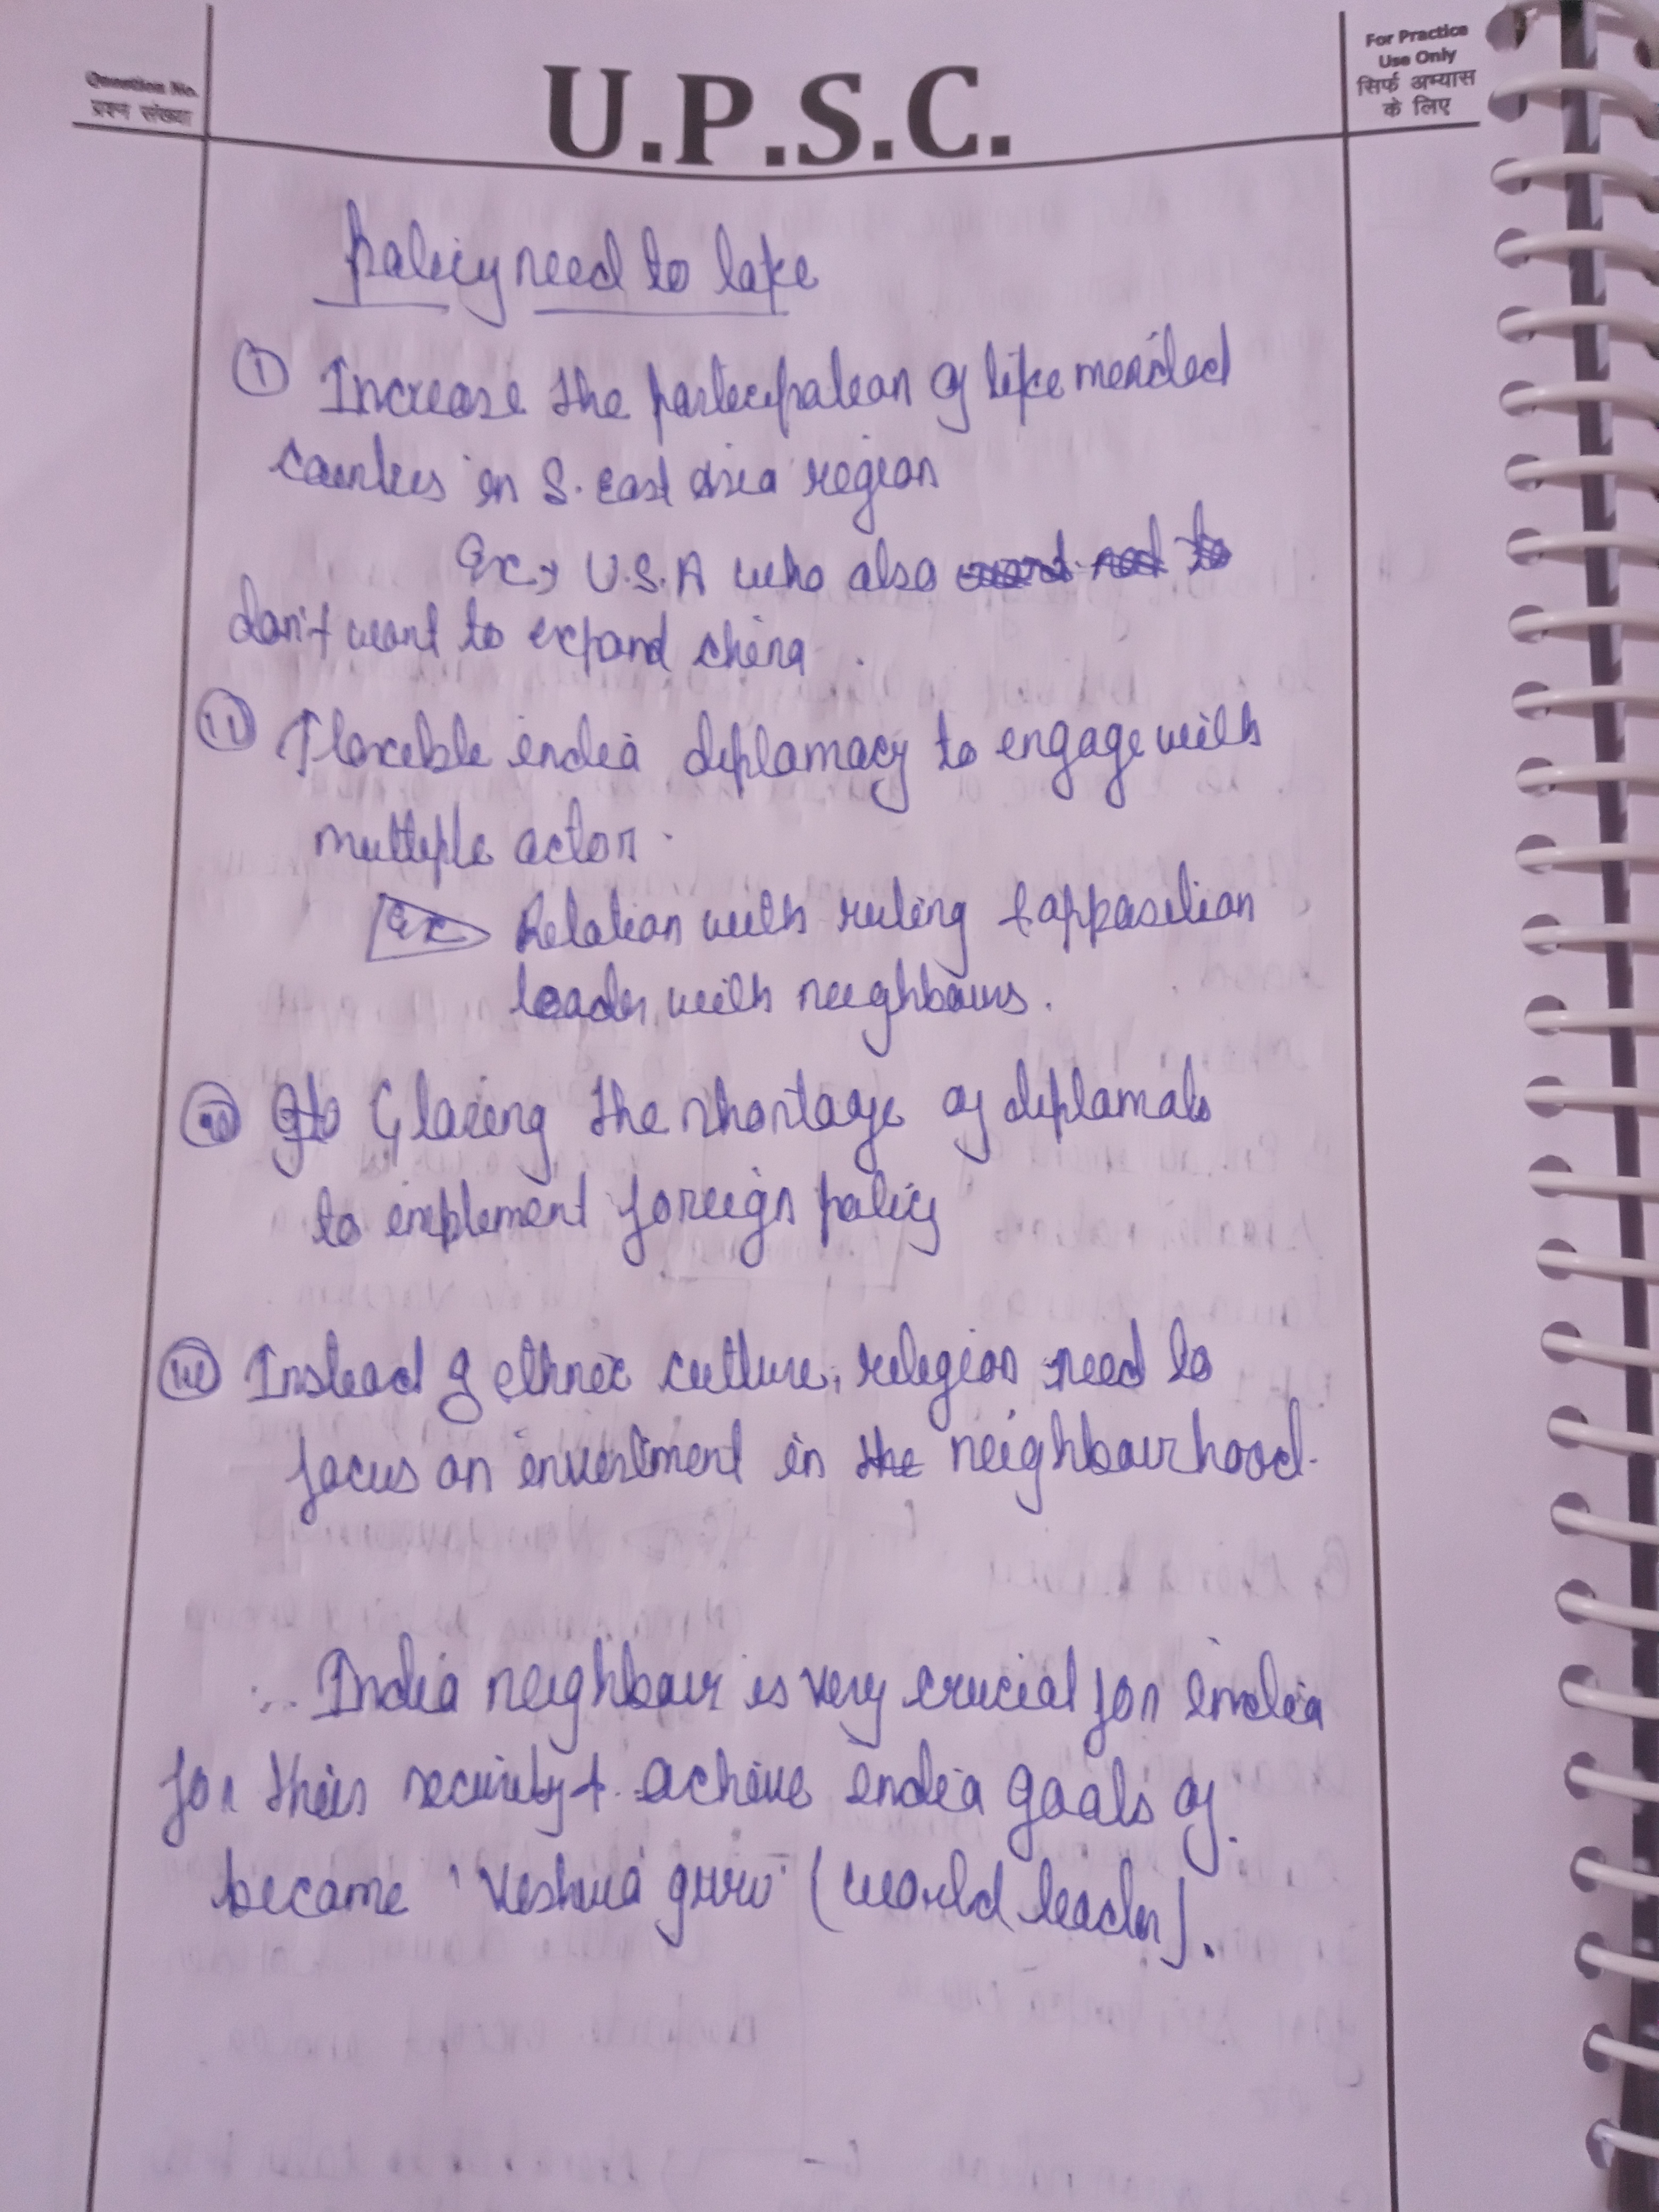 Question No.
प्रश्न संख्या
U.P.S.C.
For Practice
Use Only
सिर्फ अभ्यास
के लिए
Policy need to take
① Increase the participation of like minded
countries in S. East Asia region
Ex:→ U.S.A who also want not to
don't want to expand china.
(ii) Flexible india diplomacy to engage with
multiple actor.
Ex Relation with ruling & opposition
leader with neighbours.
Glaring the shortage of diplomats
to implement foreign policy
Instead of ethnic culture, religion need to
focus on investment in the neighbourhood.
∴ India neighbour is very crucial for india
for their security & achive india goals of
become 'Vishwa guru' (world leader).